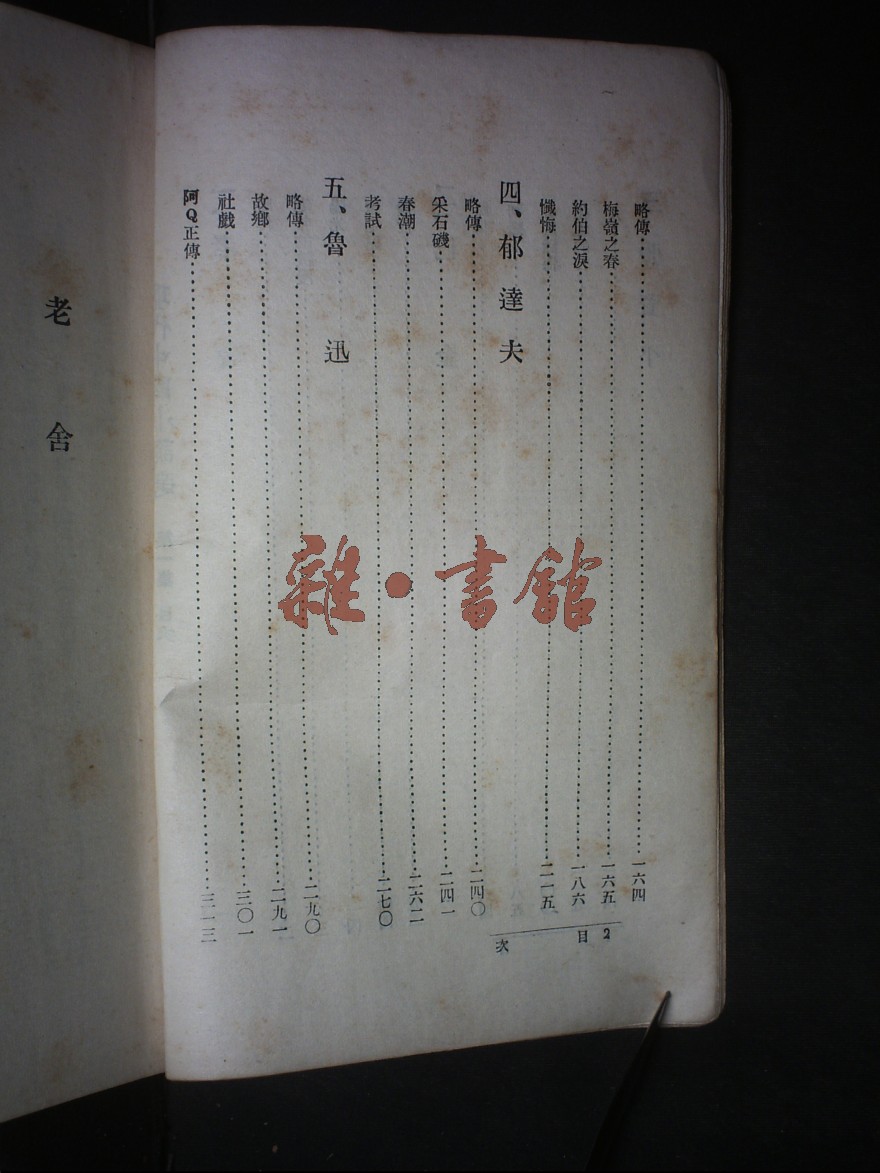 略傳……一六四
梅嶺之春……一六五
約伯之淚……一八六
懺悔……二一五
四、郁達夫
略傳……二四〇
采石磯……二四一
春潮……二六二
考試……二七〇
五、魯迅
略傳……二九〇
故鄉……二九一
社戲……三〇一
阿Q正傳……三一三
目次 2
老舍
雜·書館